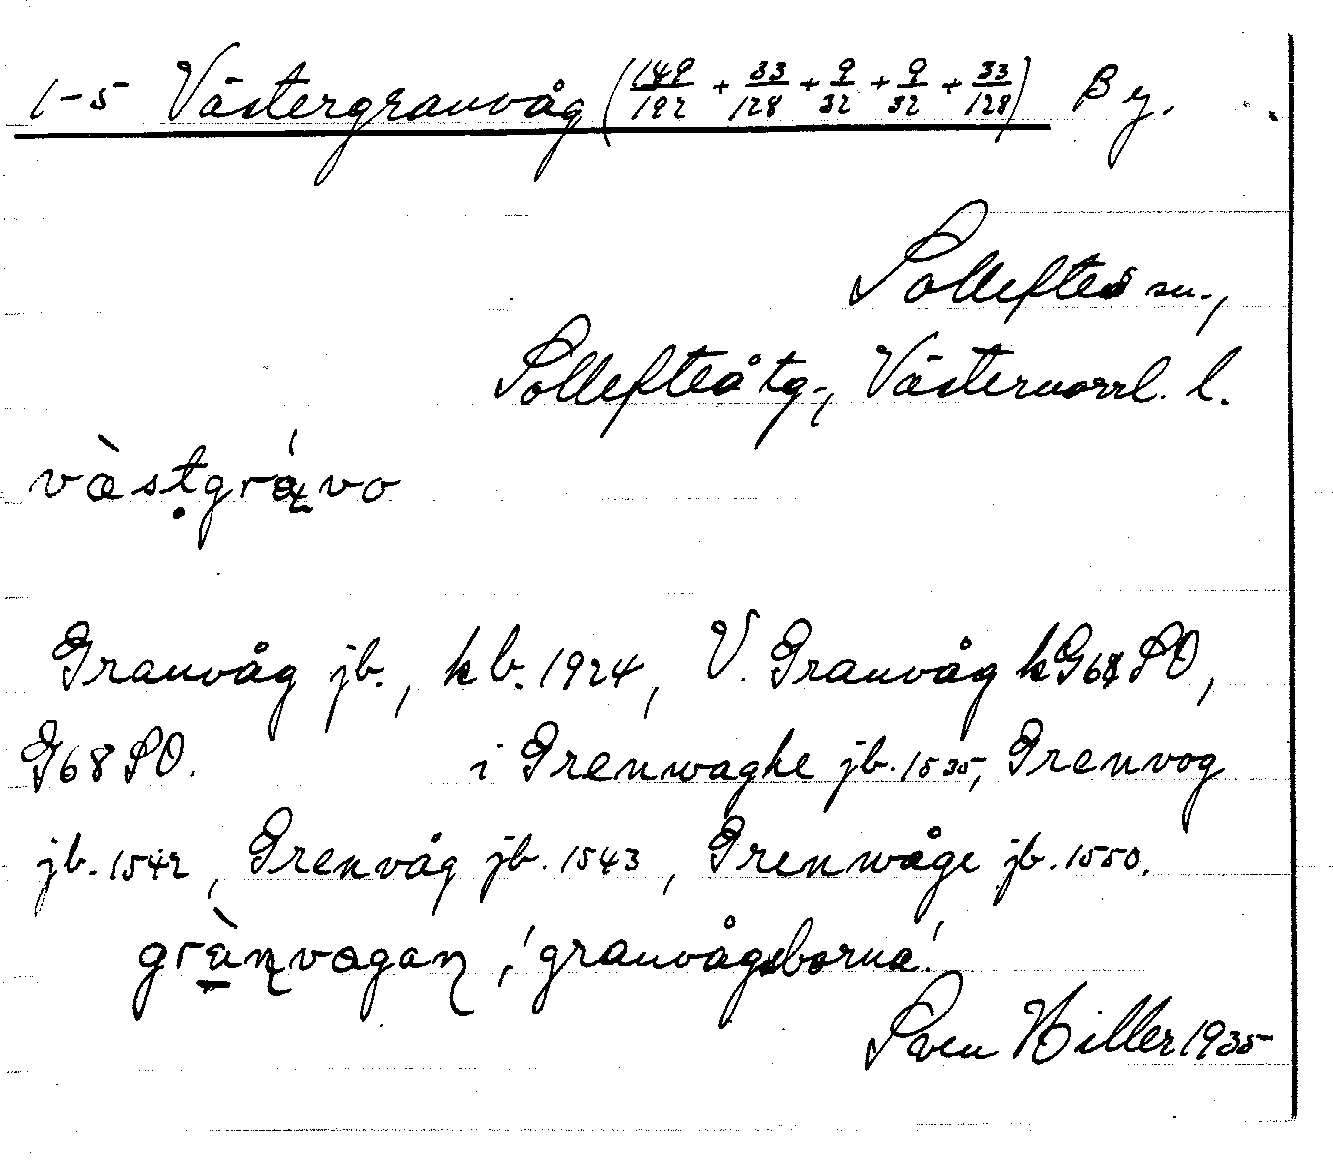 1-5 Västergranvåg (149/192 + 33/128 + 9/32 + 9/32 + 33/128) By.
Sollefteå sn.,
Sollefteå tg., Västernorrl. l.
västgrávo
Granvåg jb., kb. 1924, V. Granvåg kG68SO,
G68SO. i Grenwaghe jb. 1535, Grenvog
jb. 1542, Grenvåg jb. 1543, Grenwåge jb. 1550.
grànvagan, 'granvågsborna'.
Sven Hiller 1935